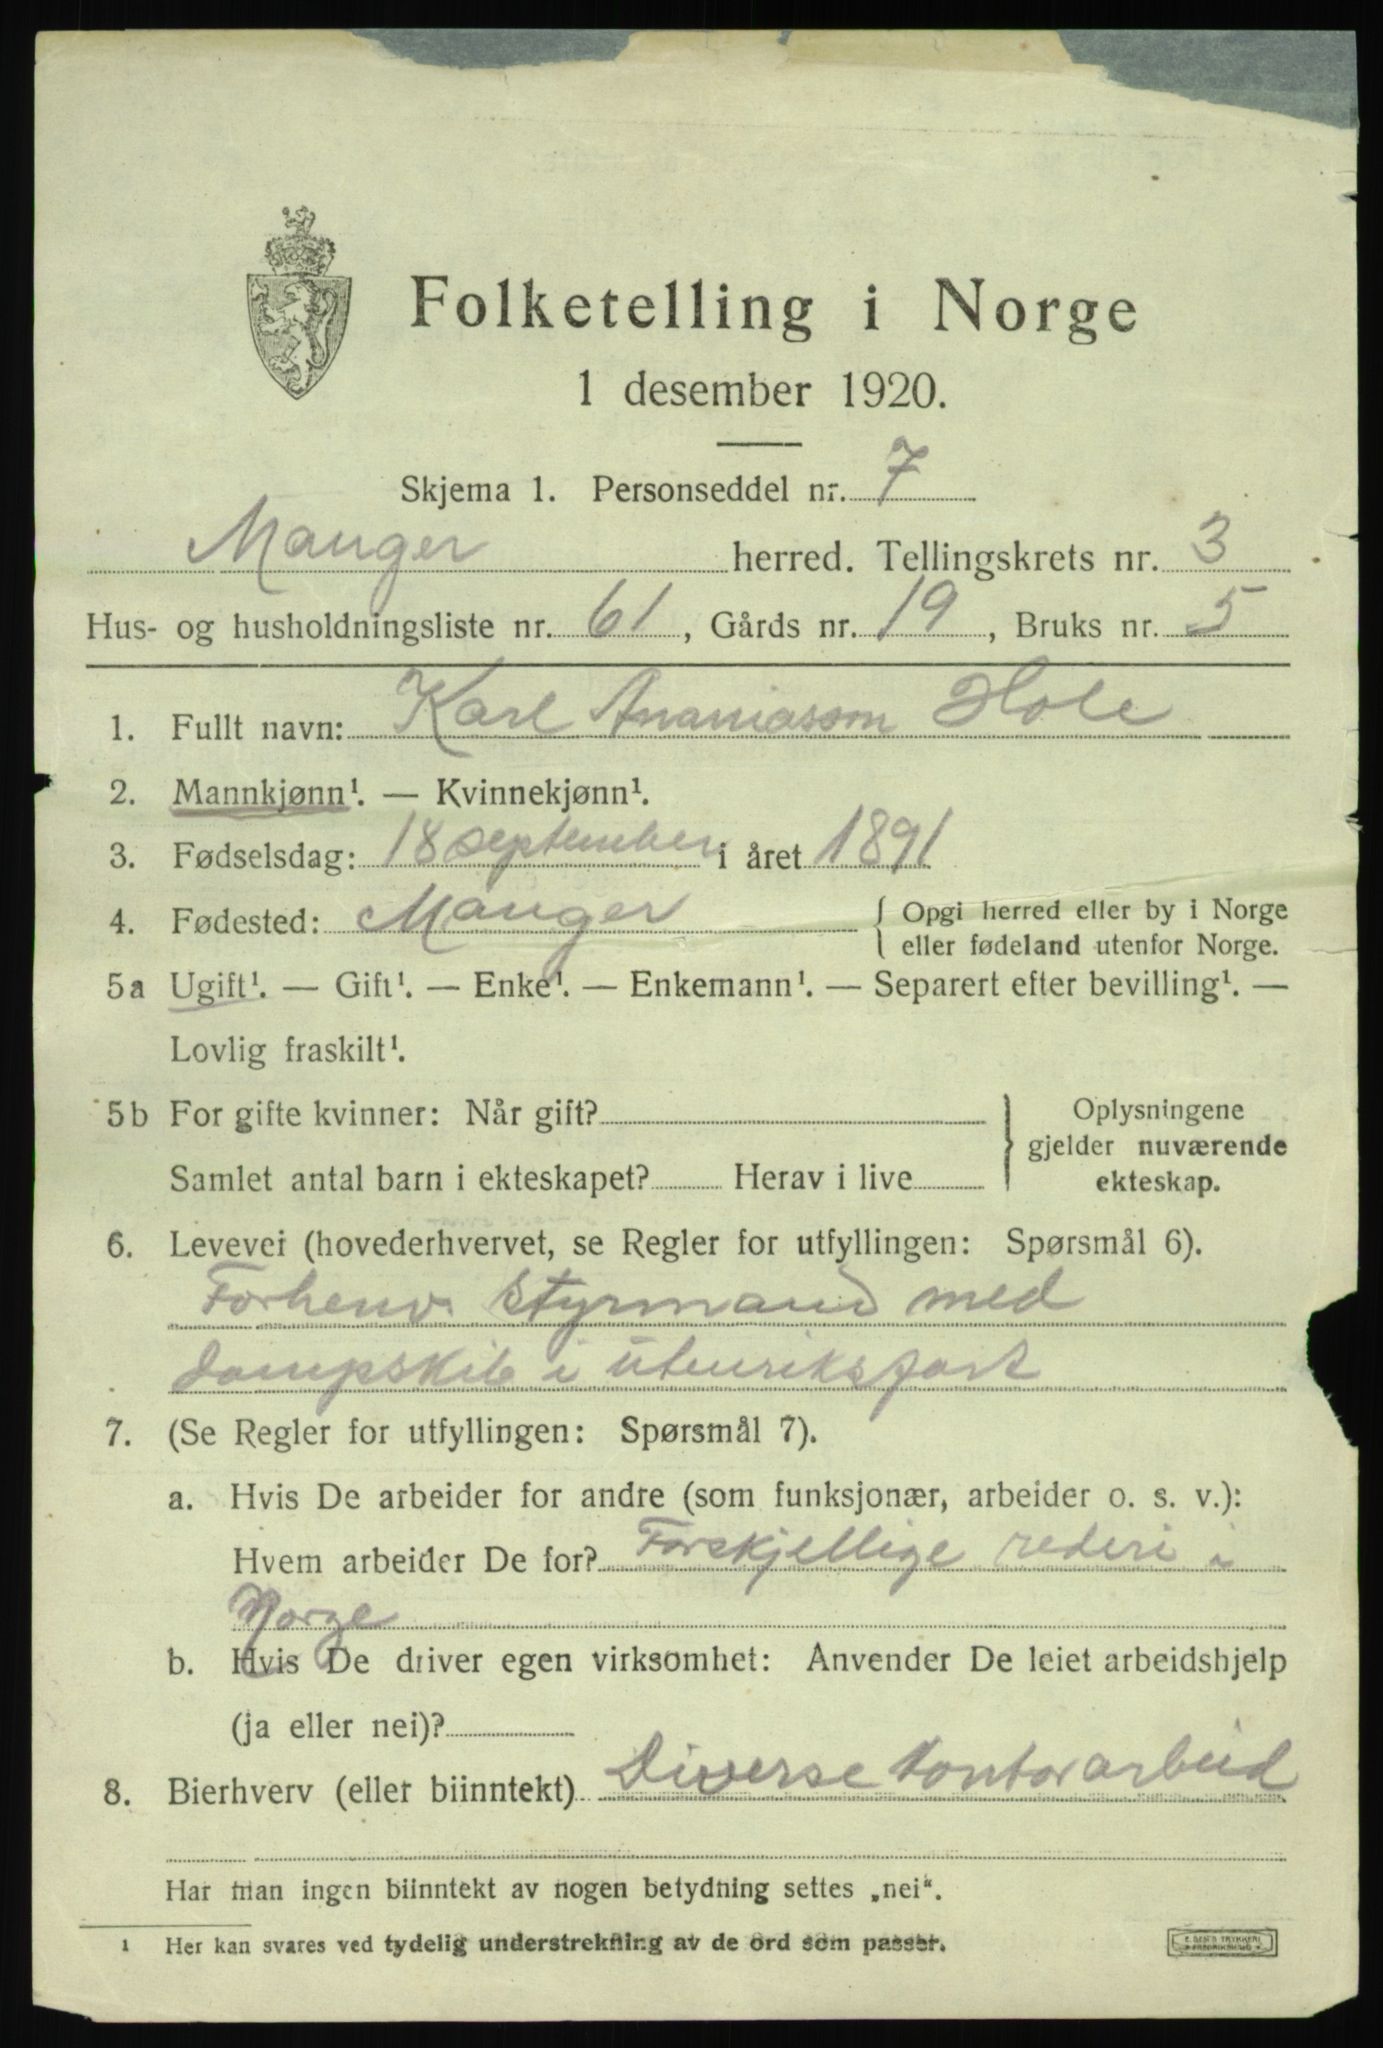 Folketelling i Norge
1 desember 1920.
Skjema 1. Personseddel nr. 7
Manger herred. Tellingskrets nr. 3
Hus- og husholdningsliste nr. 61, Gårds nr. 19, Bruks nr. 5
1. Fullt navn: Karl Ananiasson Hole
2. Mannkjønn¹. — Kvinnekjønn¹.
3. Fødselsdag: 18 september i året 1891
4. Fødested: Manger { Opgi herred eller by i Norge
eller fødeland utenfor Norge.
5a Ugift¹. — Gift¹. — Enke¹. — Enkemann¹. — Separert efter bevilling¹. —
Lovlig fraskilt¹.
5b For gifte kvinner: Når gift? } Oplysningene
gjelder nuværende
Samlet antal barn i ekteskapet? Herav i live
ekteskap.
6. Levevei (hovederhvervet, se Regler for utfyllingen: Spørsmål 6).
Forhenv. Styrmand med
dampskib i utenriksfart
7. (Se Regler for utfyllingen: Spørsmål 7).
a. Hvis De arbeider for andre (som funksjonær, arbeider o. s. v.):
Hvem arbeider De for? Forskjellige rederi i
Norge
b. Hvis De driver egen virksomhet: Anvender De leiet arbeidshjelp
(ja eller nei)?
8. Bierhverv (eller biinntekt) Diverse kontorarbeid
Har man ingen biinntekt av nogen betydning settes „nei“.
¹ Her kan svares ved tydelig understrekning av de ord som passer.